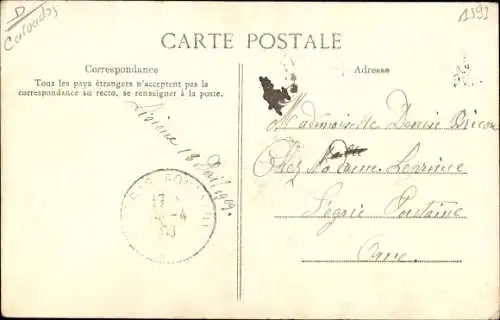 D
Calvados
1593
CARTE POSTALE
Correspondance
Tous les pays étrangers n'acceptent pas la
correspondance au recto, se renseigner à la poste.
Adresse
18 1909.
Mademoiselle Denise
Chez Madame Leprince
Ségrie Fontaine
Orne.
17
4